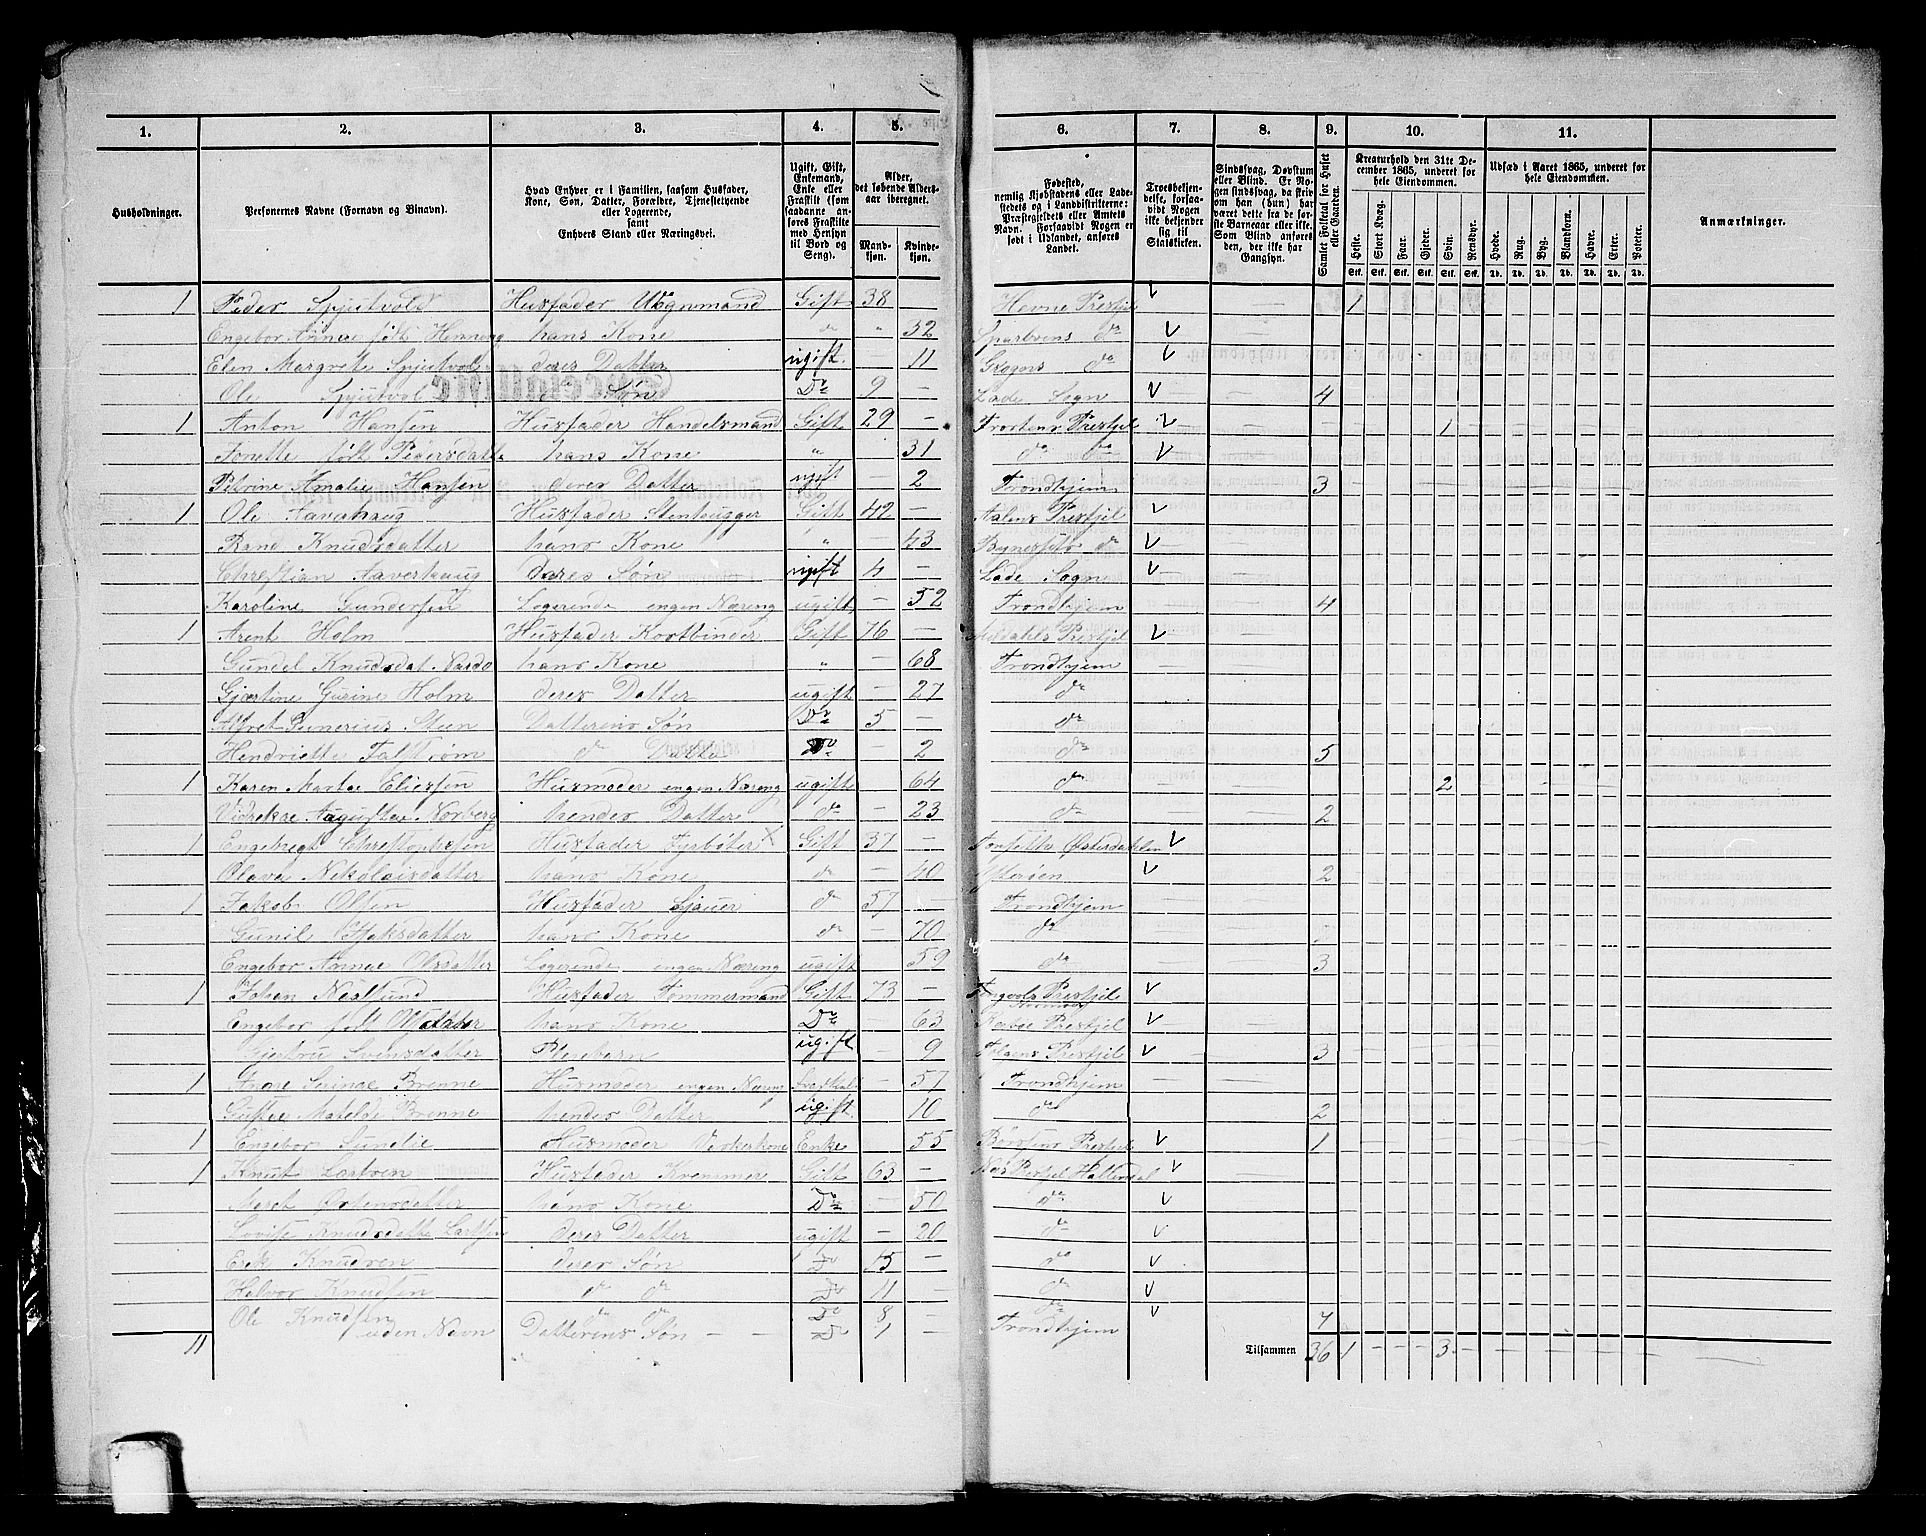 1. 2. 3. 4. 5. 6. 7. 8. 9. 10. 11.
Husholdninger. Personernes Navne (Fornavn og Binavn). Hvad Enhver er i Familien, saasom Husfader, Kone, Søn, Datter, Forældre, Tjenestetyende eller Logerende, samt Enhvers Stand eller Næringsvei. Ugift, Gift, Enkemand, Enke eller Fraskilt (som saadanne anføres Fraskilte med Hensyn til Bord og Seng). Alder, det løbende Aldersaar iberegnet. Mandkjøn. Kvindekjøn. Fødested, nemlig Kjøbstadens eller Ladestedets og i Landdistrikterne: Præstegjeldets eller Amtets Navn. Forsaavidt Nogen er født i Udlandet, anføres Landet. Troesbekjendelse, forsaavidt Nogen ikke bekjender sig til Statskirken. Sindssvag, Døvstum eller Blind. Er Nogen sindssvag, da skrives om han (hun) har været dette fra de første Barneaar eller ikke. Som Blind anføres den, der ikke har Gangsyn. Samlet Folketal for Huset eller Gaarden. Kreaturhold den 31te December 1865, underet for hele Eiendommen. Heste. Stort Kvæg. Faar. Gjeder. Svin. Rensdyr. Udsæd i Aaret 1865, underet for hele Eiendommen. Hvede. Rug. Byg. Blandkorn. Havre. Erter. Poteter. Anmærkninger.
1 Peder Spjutvold Husfader Vognmand Gift 38 Hevne Prestjel V 1
Engebor Annae født Henning hans Kone do " 32 Sparbuens do V
Elen Margrete Spjutvol deres Datter ugift 11 do V
Ole Spjutvol Søn Do 9 Lade Sogn V 4
1 Anton Hansen Husfader Handelsmand Gift 29 Frostens Prestjel V 1
Jonette født Pedersdatte hans Kone " 31 do do V
Petrine Amalie Hansen deres Datter ugift 2 Trondhjem 3
1 Ole Aavahaug Husfader Stenhugger Gift 42 Aalens Prestjel V
Rand Knudsdatter hans Kone " 43 Bynesset do V
Christian Aaverhaug deres Søn ugift 4 Lade Sogn V
Karoline Gundersen Logerende ingen Næring ugift 52 Trondhjem 4
1 Arent Holm Husfader Kortbinder Gift 76 Prestjel V
Gundel Knudsdat Nardo hans Kone " 68 Trondhjem
Gjertine Gurine Holm deres Datter ugift 27 do
Alfret Gunerius Steen Datterens Søn Do 5 do
Hendriette Falstrøm do Datte Do 2 do 5
1 Karen Martae Eliesen Husmoder ingen Næring ugift 64 do 2
Augustae Norberg hendes Datter do 23 do 2
1 Engebregt Christophersen Husfader Fyrbøter X Gift 37 Tonseth Østerdahlen V
Olava Nekolaisdatter hans Kone do 40 Ytterøen V 2
1 Jakob Olsen Husfader Sjauer do 57 Trondhjem
Gunil hans Kone do 70 do
Engebor Annae Olsdatter Logerende ingen Næring ugift 59 do 3
1 Johan Neslund Husfader Tømmermand Gift 73 Tingvols Prestjel V
Engebor født hans Kone Do 63 Prestjel V
Gjertru Svensdatter Pleiebarn ugift 9 Prestjel V 3
1 Ane Brenne Husmoder ingen Næring 57 Trondhjem
Matelde Brenne hendes Datter ugift 10 do 2
1 Engebor Husmoder Enke 55 Børsens Prestjel V 1
1 Knut Husfader Kræmmer Gift 63 Nes Prestjel Hallendal V
Marit Østensdatter hans Kone Do 50 do V
Lovise Knudsdatte deres Datter ugift 20 do V
Erik Knudsen deres Søn Do 15 do V
Halvor Knudsen do do Do 11 do V
Ole Knudsen do do Do 8 do V 7
uden Navn Datterens Søn Do 1 Trondhjem
11 Tilsammen 36 1 3